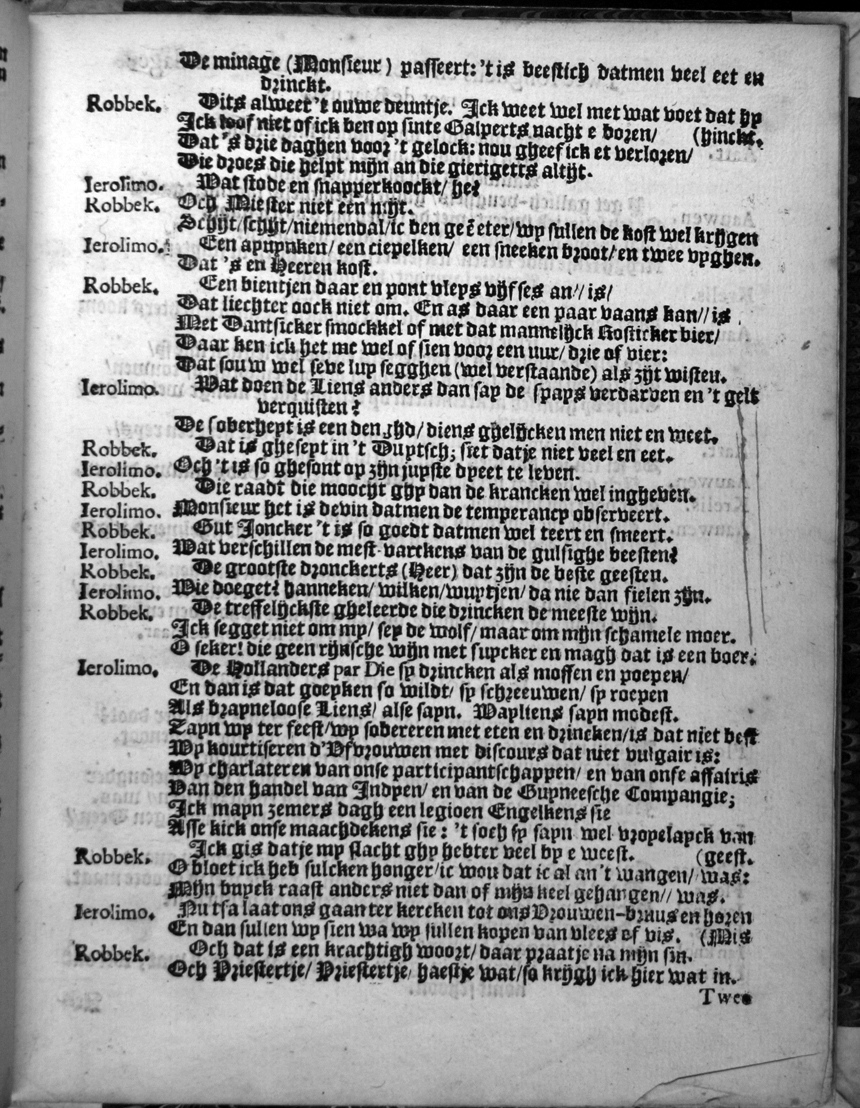 De minage (Monsieur) passeert: 't is beestich datmen veel eet en
drinckt.
Robbek. Dits alweer 't ouwe deuntje. Ick weet wel met wat voet dat hy
Ick loof niet of ick ben op sinte Galperts nacht e boren/ (hinckt.
Dat 's drie daghen voor 't gelock: nou gheef ick et verloren/
Die droes die helpt mijn an die gierigetts altijt.
Ierolimo. Wat stode en snapperkoockt/ he?
Robbek. Och Miester niet een mijt.
Schijt/schijt/niemendal/ic ben geẽ eter/wy sullen de kost wel krijgen
Ierolimo. Een apuynken/een ciepelken/ een sneeken broot/en twee vyghen.
Dat 's en Heeren kost.
Robbek. Een bientjen daar en pont vleys vijf ses an// is/
Dat liechter oock niet om. En as daar een paar vaans kan// is
Met Dantsicker smockkel of met dat mannelijck Rosticker bier/
Daar ken ick het me wel of sien voor een uur/ drie of vier:
Dat souw wel seve luy segghen (wel verstaande) als zijt wisten.
Ierolimo. Wat doen de Liens anders dan say de spays verdarven en 't gelt
verquisten?
De soberheyt is een den jhd/ diens ghelijcken men niet en weet.
Robbek. Dat is gheseyt in 't Duytsch; siet datje niet veel en eet.
Ierolimo. Och 't is so ghesont op zijn juyste dyeet te leven.
Robbek. Die raadt die moocht ghy dan de krancken wel ingheven.
Ierolimo. Monsieur het is devin datmen de temperancy observeert.
Robbek. Gut Joncker 't is so goedt datmen wel teert en smeert.
Ierolimo. Wat verschillen de mest-varckens van de gulsighe beesten?
Robbek. De grootste dronckerts (Heer) dat zijn de beste geesten.
Ierolimo. Wie doeget? hanneken/ wilken/wuytjen/ da nie dan fielen zijn.
Robbek. De treffelijckste gheleerde die drincken de meeste wijn.
Ick segget niet om my/ sey de wolf/ maar om mijn schamele moer.
O seker! die geen rijnsche wijn met suycker en magh dat is een boer.
Ierolimo. De Hollanders par Die sy drincken als moffen en poepen/
En dan is dat goepken so wildt/ sy schreeuwen/ sy roepen
Als brayneloose Liens/ alse sayn. Wayliens sayn modest.
Zayn wy ter feest/wy sobereren met eten en drincken/is dat niet best
Wy kourtiseren d'Vfvrouwen met discours dat niet vulgair is:
Wy charlateren van onse participantschappen/ en van onse affairis
Van den handel van Indyen/ en van de Guyneesche Compangie;
Ick mayn zemers dagh een legioen Engelkens sie
Asse kick onse maachdekens sie: 't soch sy sayn wel vroyelayck van
Robbek. Ick gis datje my slacht ghy hebter veel by e weest. (geest.
O bloet ick heb sulcken honger/ic wou dat ic al an 't wangen/ was:
Mijn buyck raast anders niet dan of mijn keel gehangen// was.
Ierolimo. Nu tsa laat ons gaan ter kercken tot ons Vrouwen-bruus en horen
En dan sullen wy sien wa wy sullen kopen van vlees of vis. (Mis
Robbek. Och dat is een krachtigh woort/ daar praatje na mijn sin.
Och Priestertje/ Priestertje/ haestje wat/so krijgh ick hier wat in.
Twee